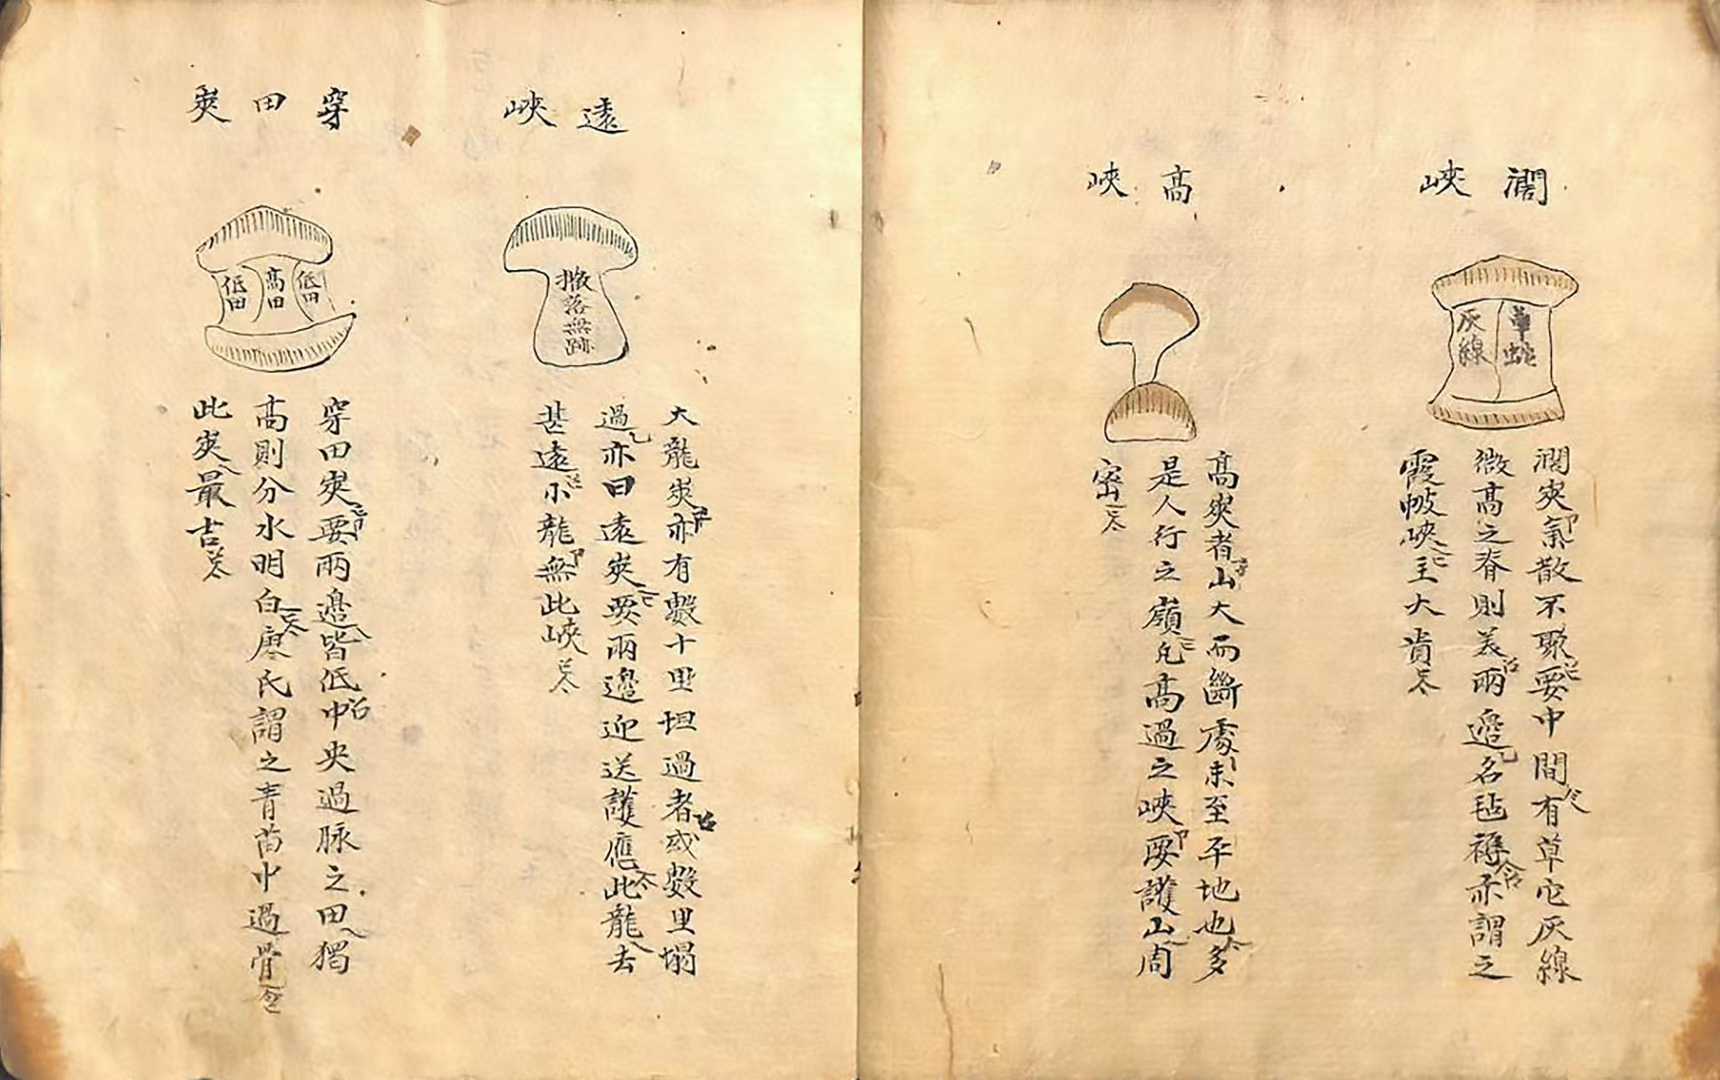 濶峽
草蛇
灰線
濶峡氣散不聚要中間有草它灰線
微高之脊則美兩邉名毡褥亦謂之
霞帔峽主大貴
高峽
高峡者山大而斷處未至平地也多
是人行之嶺凢高過之峽要護山周
密
遠峽
撒落無跡
大龍峡亦有數十里坦過者或數里塌
過亦曰遠峡要兩邉迎送護應此龍去
甚遠小龍無此峽
穿田峡
低田
高田
低田
穿田峡要兩邉皆低中央過脉之田獨
高則分水明白廖氏謂之青苗中過骨
此峡最吉